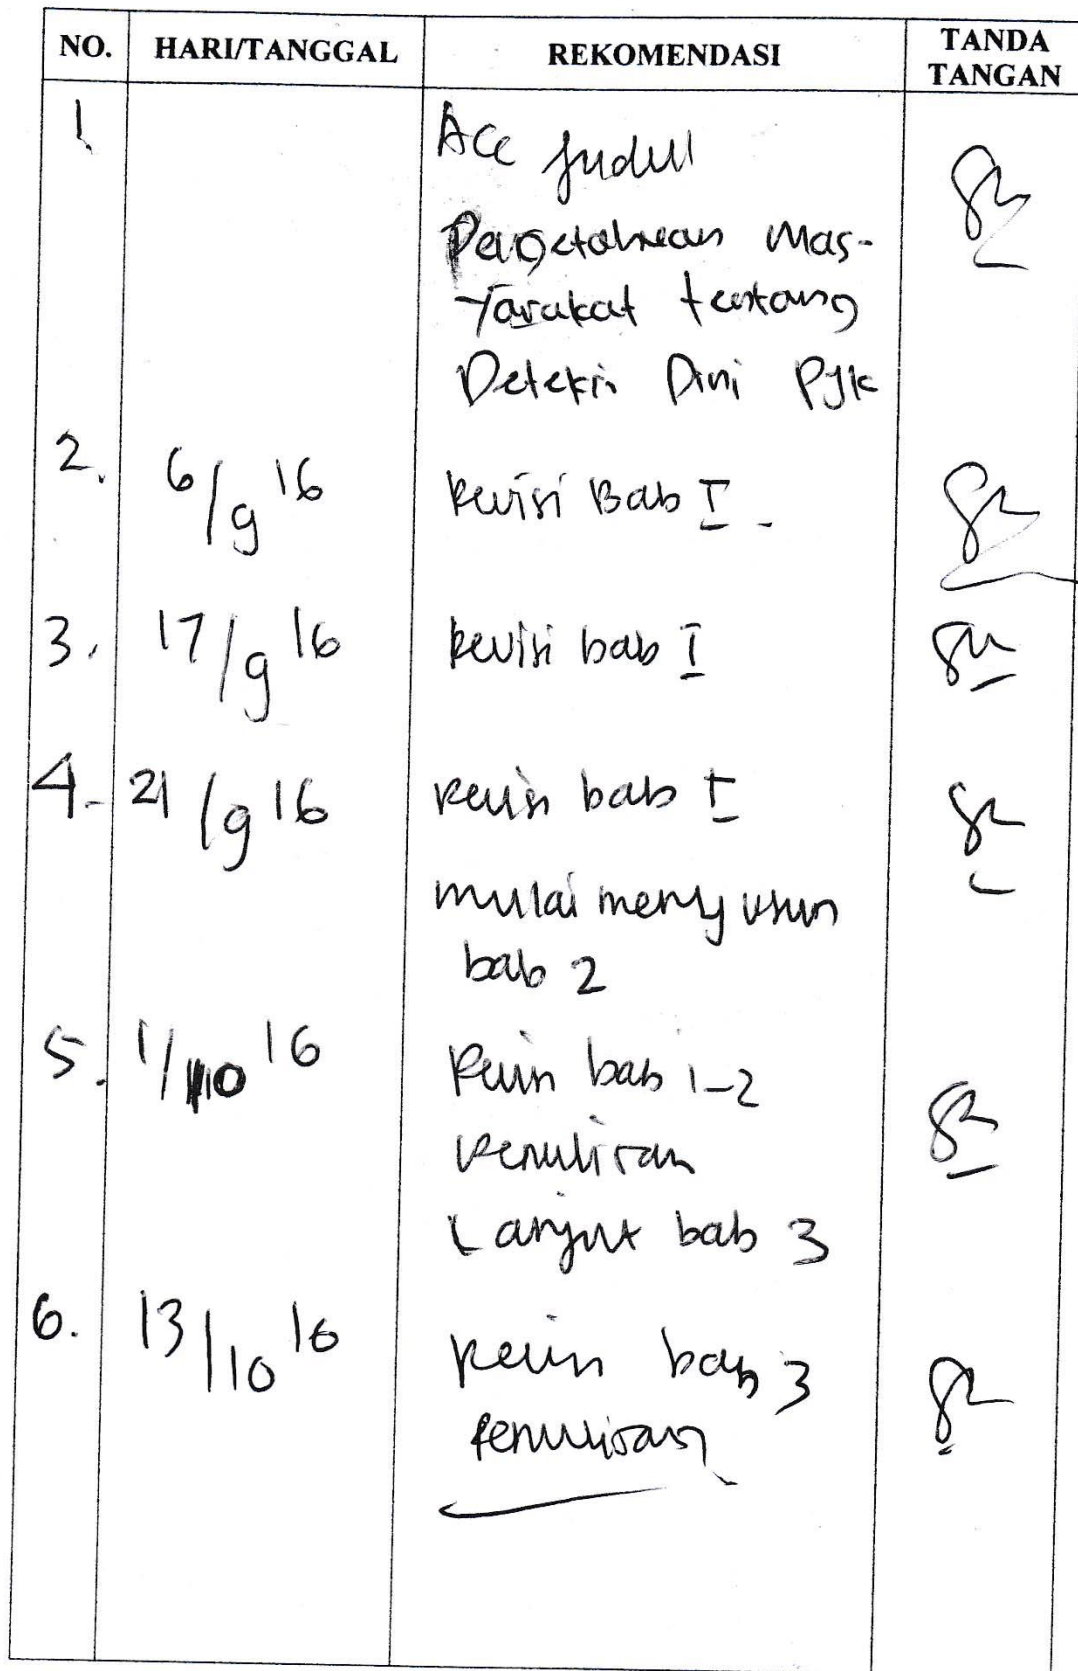 NO. HARI/TANGGAL REKOMENDASI TANDA TANGAN
1. Acc Judul
Pengetahuan Mas-
yarakat tentang
Deteksi Dini PJK
2. 6/9 16 Revisi Bab I -
3. 17/9 16 Revisi bab I
4- 21/9 16 Revisi bab I
mulai menyusun
bab 2
5. 1/10 16 Revisi bab 1-2
Penulisan
Lanjut bab 3
6. 13/10 16 Revisi bab 3
Penulisan